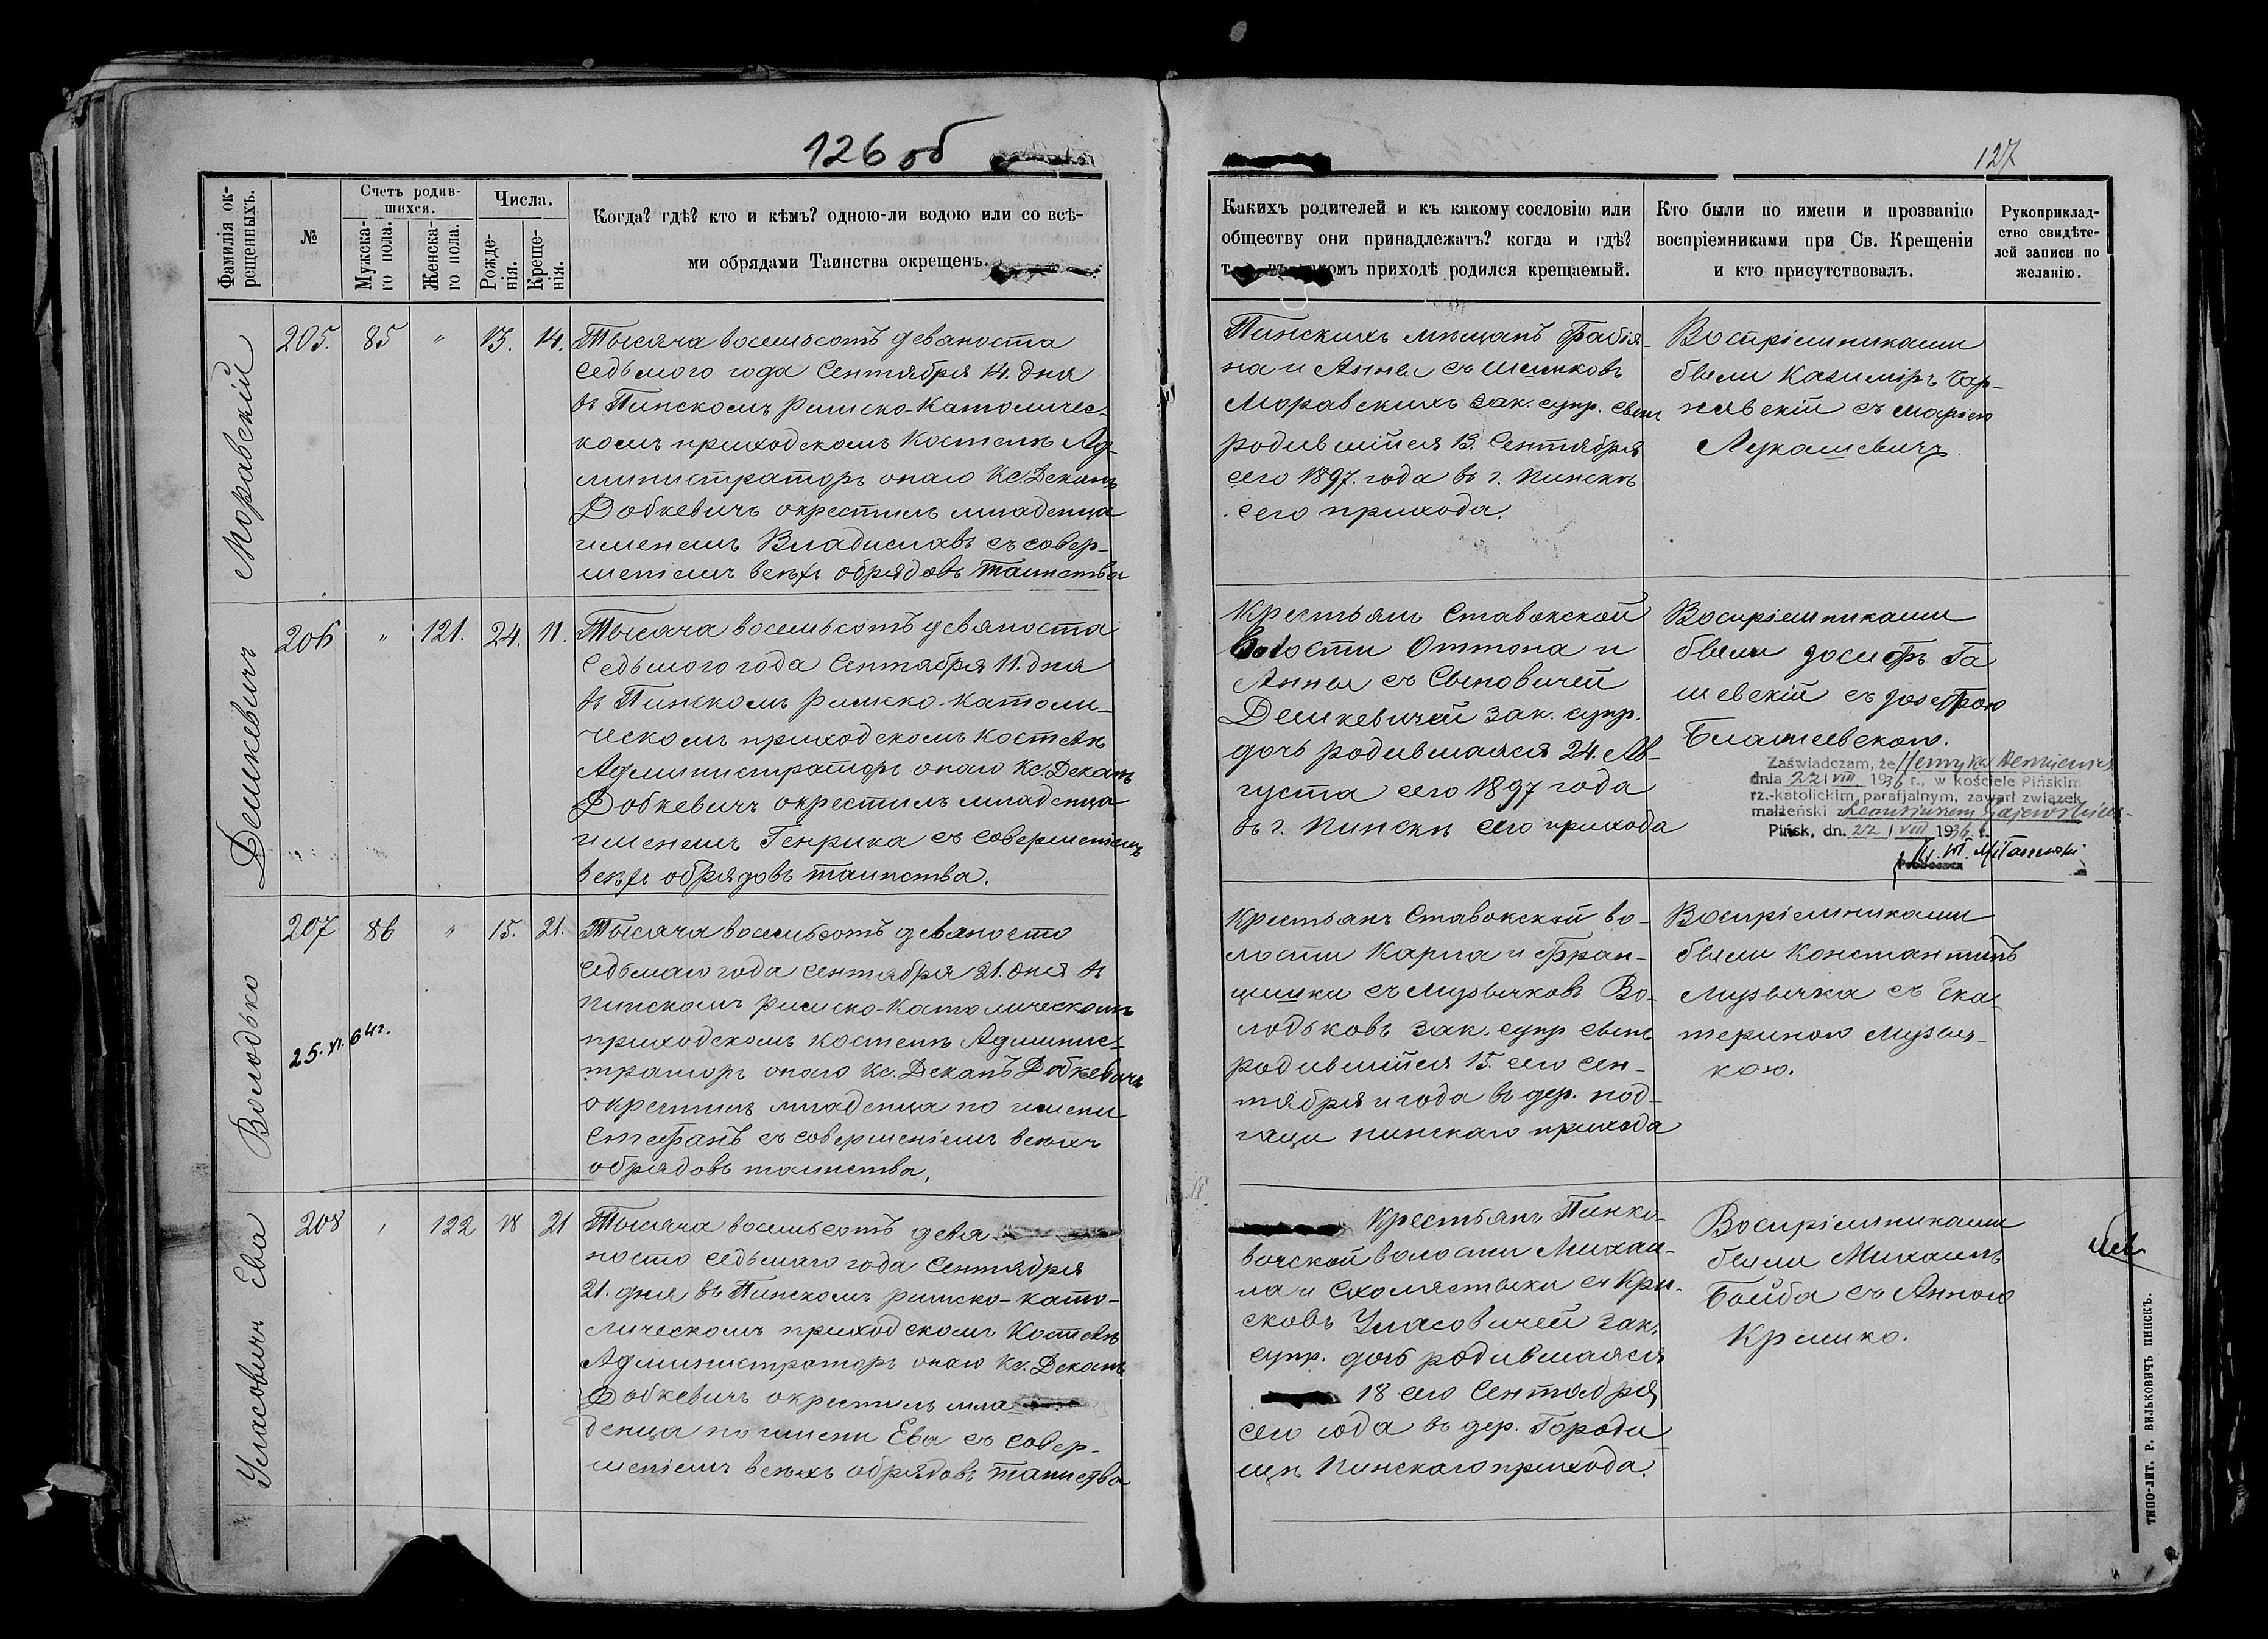 126 об
127
Фамилія ок-
рещенныхъ.
№
Счетъ родив-
шихся.
Мужска-
го пола.
Женска-
го пола.
Числа.
Рожде-
нія.
Креще-
нія.
Когда? гдѣ? кто и кѣмъ? одною-ли водою или со всѣ-
ми обрядами Таинства окрещенъ.
Какихъ родителей и къ какому сословію или
обществу они принадлежатъ? когда и гдѣ?
приходѣ родился крещаемый.
Кто были по имени и прозванію
воспріемниками при Св. Крещеніи
и кто присутствовалъ.
Рукоприклад-
ство свидѣте-
лей записи по
желанію.
Моравскій
205. 85 " 13. 14.
Тысяча восемьсотъ девяноста
седьмого года Сентября 14. дня
въ Пинскомъ Римско-Католичес-
комъ приходскомъ Костелѣ Ад-
министраторъ онаго Кс. Деканъ
Добкевичъ окрестилъ младенца
именемъ Владиславъ съ совер-
шеніемъ всѣхъ обрядовъ таинства
Пинскихъ мѣщанъ Фабія-
на и Анны съ
Моравскихъ зак. супр. сынъ
родившійся 13. Сентября
сего 1897. года въ г. Пинскѣ
сего прихода.
Воспріемниками
были Казиміръ
съ Маріею
Лукашевичъ.
Демкевичъ
206 " 121. 24. 11.
Тысяча восемьсотъ девяноста
седьмого года Сентября 11. дня
въ Пинскомъ Римско-католи-
ческомъ приходскомъ костелѣ
Администраторъ онаго Кс. Деканъ
Добкевичъ окрестилъ младенца
именемъ Генрика съ совершеніемъ
всѣхъ обрядовъ таинства.
Крестьянъ Ставокской
волости Оттона и
Анны съ Сыновичей
Демкевичей зак. супр.
дочь родившаяся 24. Ав-
густа сего 1897 года
въ г. Пинскѣ сего прихода
Воспріемниками
были Іосифъ Га
шевскій съ Іозефою
Zaświadczam, że Henryka
dnia 22/VIII 1936 r., w kościele Pińskim
rz.-katolickim parafjalnym, zawarł związek
małżeński z
Pińsk, dn. 22/VIII 1936 r.
Proboszcz
Володько
207 86 " 15. 21.
25. XI. 64г.
Тысяча восемьсотъ девяносто
седьмаго года сентября 21. дня въ
пинскомъ римско-католическомъ
приходскомъ костелѣ Админис-
траторъ онаго Кс. Деканъ Добкевичъ
окрестилъ младенца по имени
Стефанъ съ совершеніемъ всѣхъ
обрядовъ таинства.
Крестьянъ Ставокской во-
лости Карпа и Фран-
цишки съ Музычковъ Во-
лодьковъ зак. супр сынъ
родившійся 15. сего сен-
тября и года въ дер. под-
гаци пинскаго прихода
Воспріемниками
были Константинъ
Музычка съ Ека
териною Музыч-
кою.
Уласовичъ Ева
208 " 122 18 21
Тысяча восемьсотъ девя
носто седьмаго года Сентября
21. дня въ Пинскомъ римско-като-
лическомъ приходскомъ Костелѣ
Администраторъ онаго Кс. Деканъ
Добкевичъ окрестилъ мла
денца по имени Ева съ совер-
шеніемъ всѣхъ обрядовъ таинства
Крестьянъ Пинко-
вичской волости Михаи-
ла и Схолястыки съ Кри-
сковъ Уласовичей зак.
супр. дочь родившаяся
18 сего Сентября
сего года въ дер. Городи
щѣ Пинскаго прихода.
Воспріемниками
были Михаилъ
Бойба съ Анною
Кришко.
ТИПО-ЛИТ. Р. ВИЛЬКОВИЧЪ ПИНСКЪ.